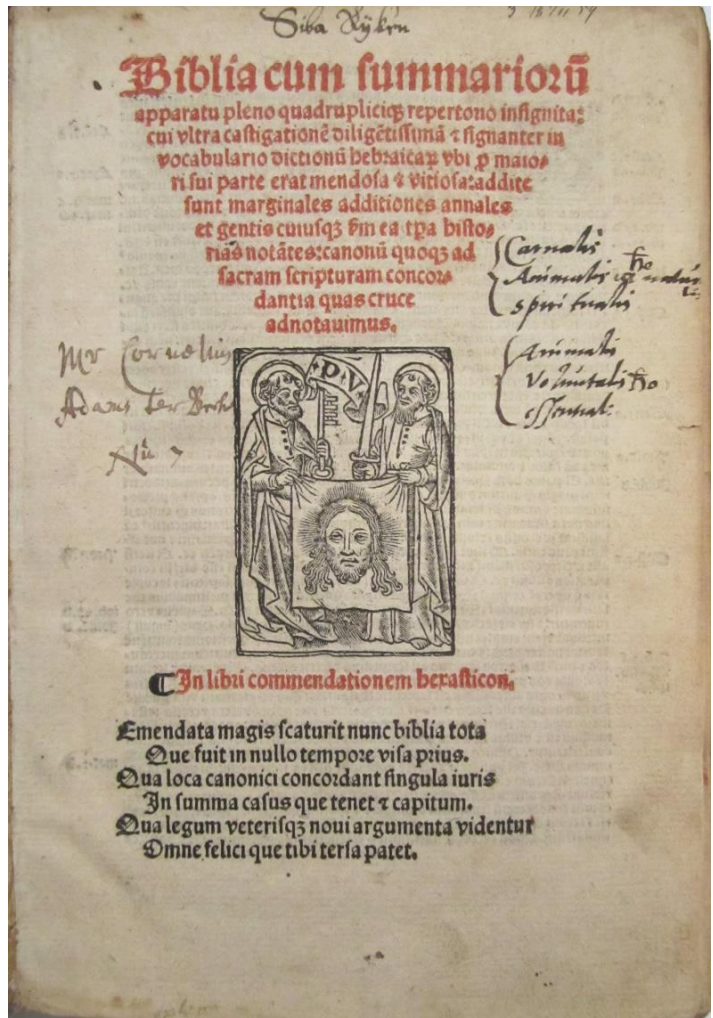 Siba Rÿken
Biblia cum summarioꝝ̃
apparatu pleno quadrupliciqꝫ repertorio insignita:
cui vltra castigationẽ diligẽtissimã ⁊ signanter in
vocabulario dictionũ hebraicaꝝ vbi ꝓ maio⸗
ri sui parte erat mendosa ⁊ vitiosa: addite
sunt marginales additiones annales
et gentis cuiusqꝫ
notãtes: canonũ quoqꝫ ad
sacram scripturam concor⸗
dantia quas cruce
adnotauimus.
Carnalis
Animalis
Spiritualis
Animalis
Voluntalis
Mr Cornelius
Adams ter
P V
In libri commendationem hexasticon.
Emendata magis scaturit nunc biblia tota
Que fuit in nullo tempore visa prius.
Qua loca canonici concordant singula iuris
In summa casus que tenet ⁊ capitum.
Qua legum veterisqꝫ noui argumenta videntur
Omne felici que tibi tersa patet.